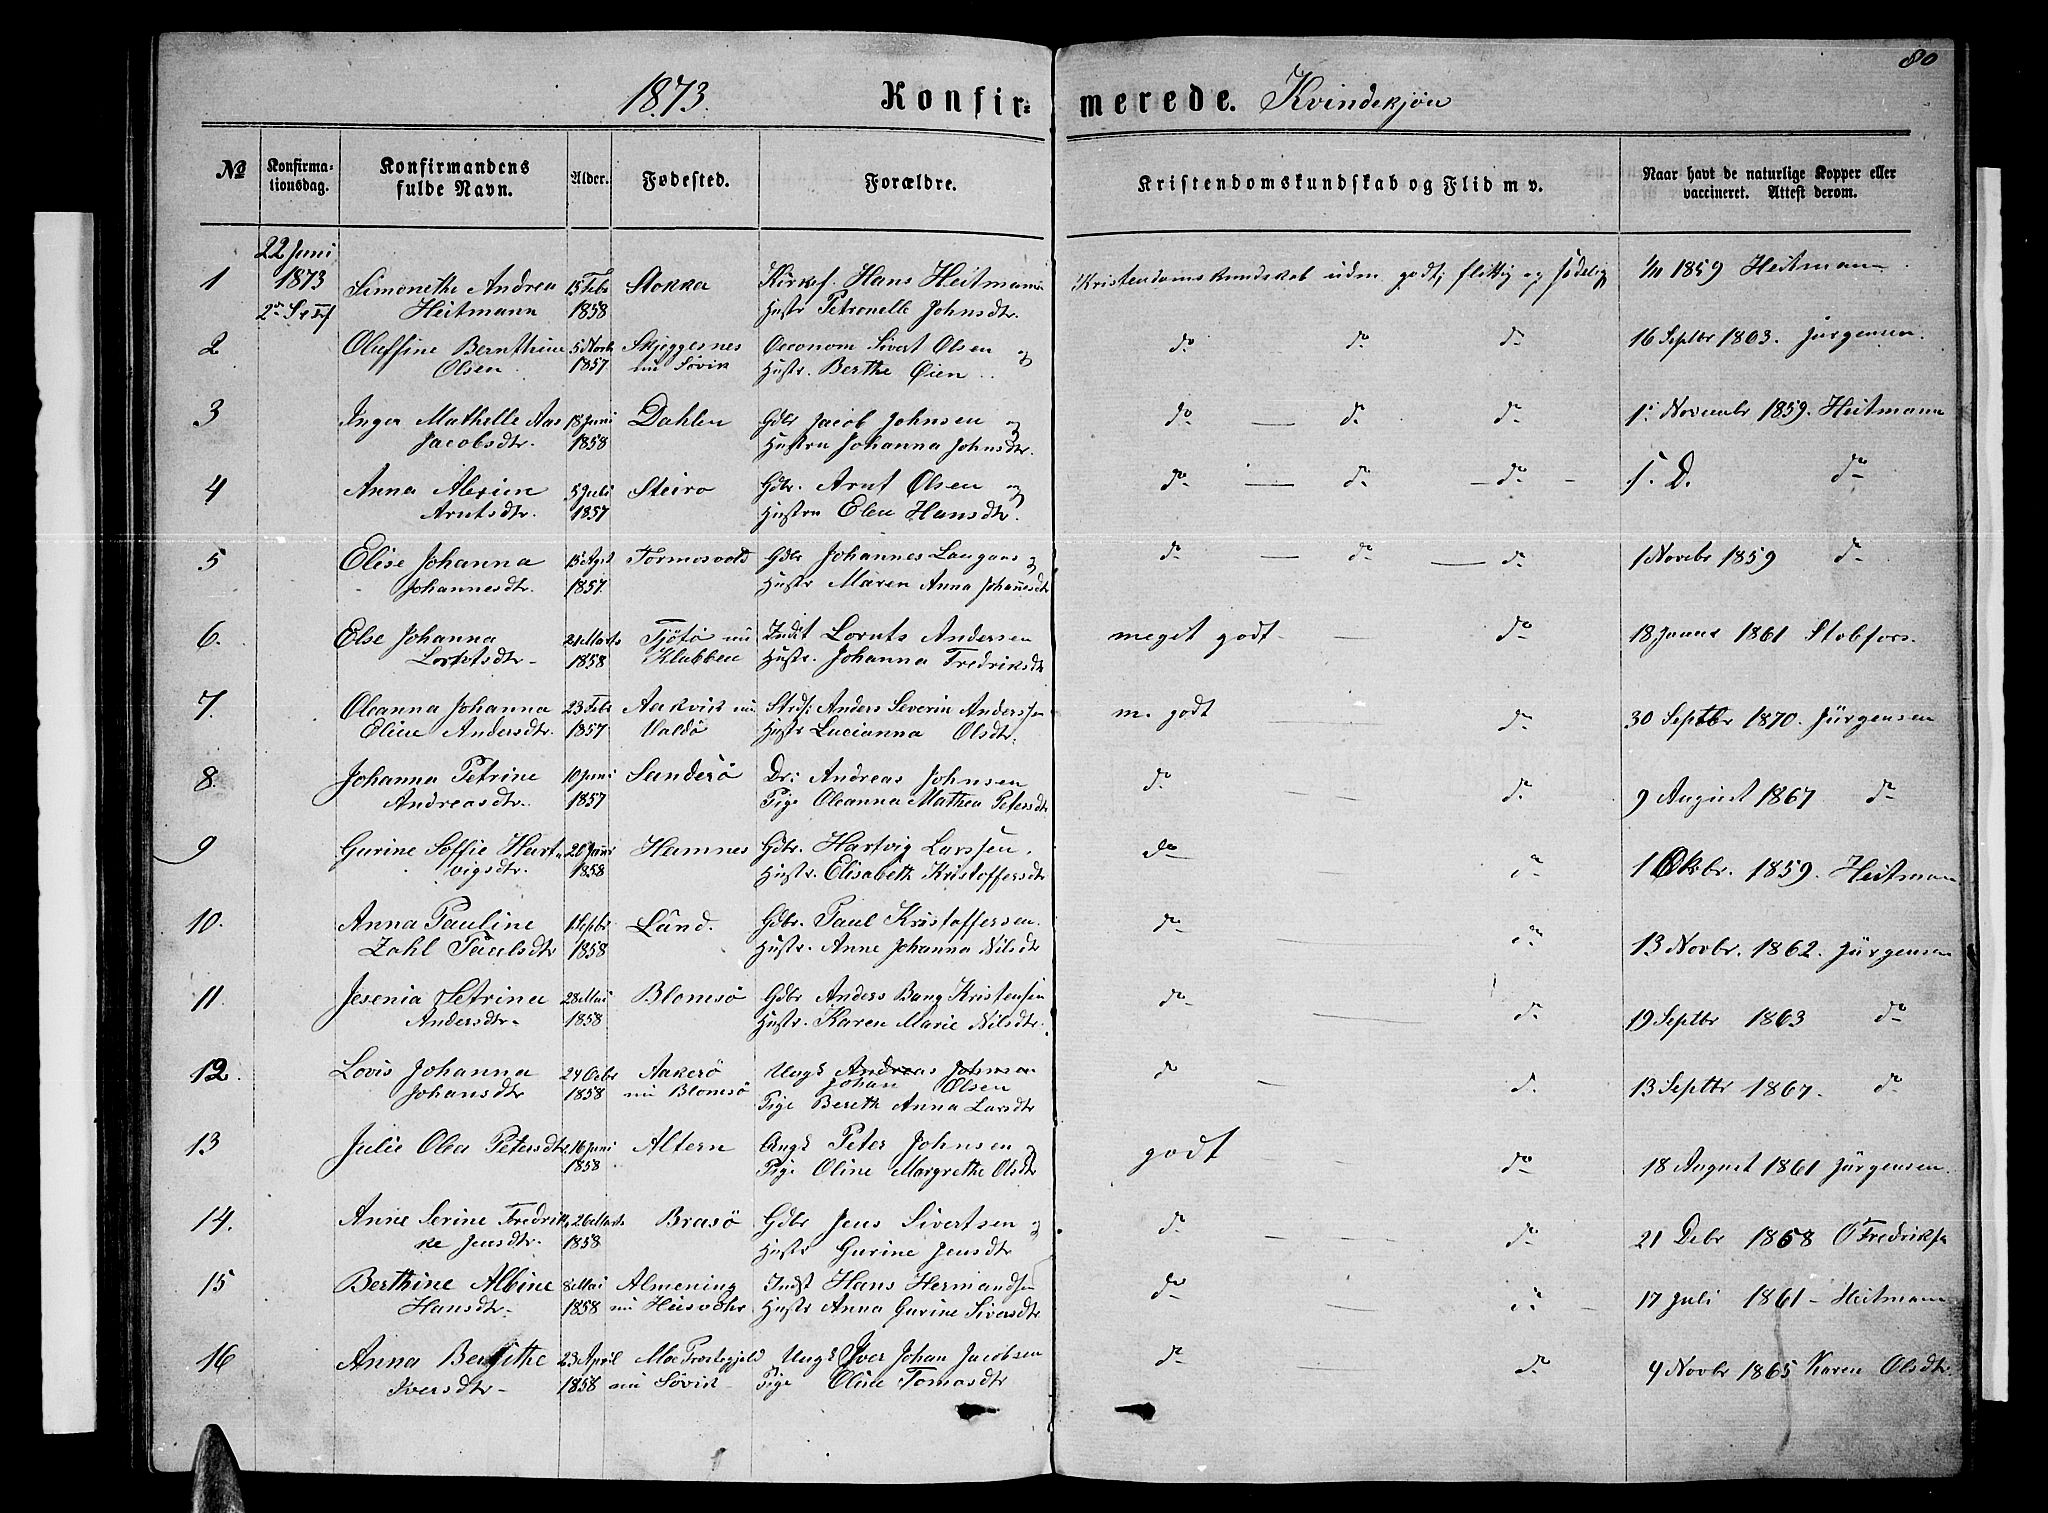 80
1873. Konfirmerede. Kvindekjön
No
Konfirmationsdag.
Konfirmandens fulde Navn.
Alder.
Fødested.
Forældre.
Kristendomskundskab og Flid m v.
Naar havt de naturlige Kopper eller vaccineret. Attest derom.
22 Juni
1 1873 Simonethe Andrea 15 Feb Stokka Kirkes. Hans Heitmann Kristendomskundskab uden godt; flittig og sædelig 1/11 1859 Heitmann
2n S e Tref Heitmann 1858 Hustr Petronelle Johnsdtr.
2 Oluffine Bernthine 5 Novb Skjeggesnes Oeconom Sivert Olsen og do do do 16 Septbr 1863. Jürgensen.
Olsen 1857 nu Søvik Hustr. Berthe Øien
3 Inger Mathelle Aas 18 Juni Dahlen Gdbr Jacob Johnsen og do — do do 1. Novembr 1859. Heitmann
Jacobsdtr. 1858 Hustru Johanna Johnsdtr.
4 Anna Alexien 5 Juli Steiro Gdbr. Arnt Olsen og do — do — do — s. D. do
Arntsdtr. 1857 Hustru Elen Hansdtr.
5 Elise Johanna 15 Agst Tormosvold Gdbr Johannes Langaas og do — do — do 1 Novebr 1859 do
Johannesdtr. 1857. Hustr Maren Anna Johannesdtr
6. Else Johanna 21 Marts Tjötö nu Indst Lornts Andersen meget godt — do 18 Januar 1861 Stobfors.
Lorntsdtr 1858 Klubben Hustr. Johanna Fredriksdtr
7. Oleanna Johanna 23 Feb Aakvik nu Strds: Anders Severin Anderssen m. godt do 30 Septbr 1870. Jürgensen
Eline Andersdtr. 1857 Valdö Hustr Lucianna Olsdtr.
8. Johanna Petrine 10 Juni Sandesö Dr: Andreas Johnsen do do 9 August 1867 do
Andreasdtr. 1857 Pige Oleanna Mathea Petersdtr
9 Gurine Soffie Hart- 20 Juni Hamnes Gdbr. Hartvig Larssen. do do 1 Oktbr. 1859. Heitmann
vigsdtr. 1858 Hustr. Elisabeth Kristoffersdtr
10. Anna Pauline 1 Septbr Lünd. Gdbr. Paul Kristoffersen. do do 13 Novbr. 1862. Jürgensen
Zahl Paulsdtr 1858 Hustr. Anne Johanna Nilsdtr
11. Jesenia Petrina 28 Mai Blomsö Gdbr Anders Bang Kristensen do do 19 Septbr 1863 do
Andersdtr 1858 Hustr. Karen Marie Nilsdtr.
12. Lovis Johanna 24 Octbr Aakerö Ungk Andreas Johnsen do do 13 Septbr 1867. do
Johan Olsen
Johansdtr 1858 nu Blomsö Pige Bereth Anna Larsdtr
13 Julie Olea Petersdtr. 16 Juni Altern Ungk Peter Johnsen og godt do 18 August 1861 Jürgensen.
1858. Pige Oline Margrethe Olsdtr
14. Anne Serine Fredrik- 26 Marts Brasö Gdbr Jens Sivertsen og do do 21 Debr 1868 O Fredriksen
ke Jensdtr. 1858 Hustr Gurine Jensdtr
15 Berthine Albine 8 Mai Almening Indst Hans Hermandsen do do 17 Juli 1861 - Heitmann
Hansdtr 1858 nu Husvær Hustr Anna Gurine Siversdtr
16 Anna Bergithe 23 April Moe Prestegjeld Ungk Iver Johan Jacobsen do do 4 Novbr 1865 Karen Olsdtr.
Iversdtr 1858 nu Søvik Pige Oline Tomasdtr